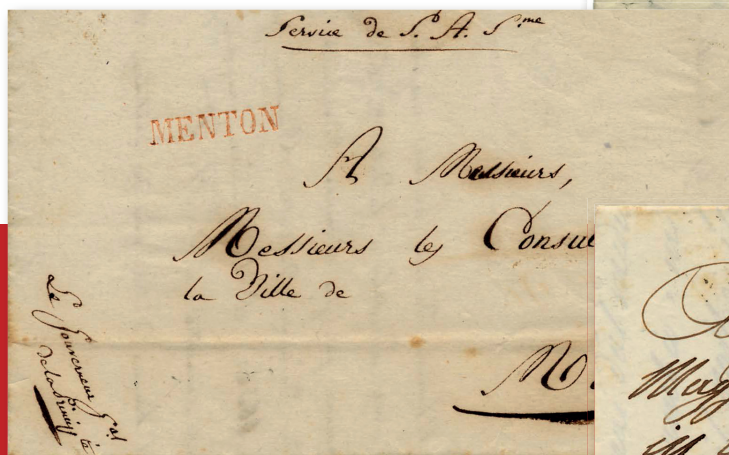 Service de S. A. S.me
MENTON
A Messieurs,
Messieurs les Consu
la Ville de
M
Le Gouverneur Gal
de la Princip.té